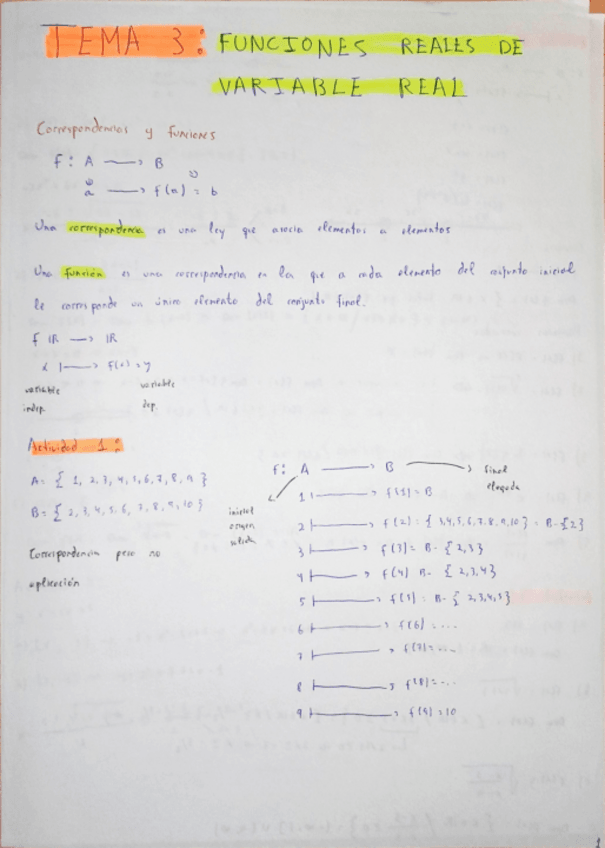 TEMA 3: FUNCIONES REALES DE
VARIABLE REAL
Correspondencias y funciones
f: A ⟶ B
a ⟶ f(a) = b
Una correspondencia es una ley que asocia elementos a elementos
Una función es una correspondencia en la que a cada elemento del conjunto inicial
le corresponde un único elemento del conjunto final.
f ℝ ⟶ ℝ
x ⟼ f(x) = y
variable variable
indep. dep.
Actividad 1:
A= { 1, 2, 3, 4, 5, 6, 7, 8, 9 }
B= { 2, 3, 4, 5, 6, 7, 8, 9, 10 }
Correspondencia pero no
aplicación
f: A ⟶ B ⟶ final
llegada
inicial
origen
salida
1 ⟼ f(1) = B
2 ⟼ f(2) = { 3, 4, 5, 6, 7, 8, 9, 10 } = B-{2}
3 ⟼ f(3) = B-{2,3}
4 ⟼ f(4) B-{2,3,4}
5 ⟼ f(5) = B-{2,3,4,5}
6 ⟼ f(6) = ...
7 ⟼ f(7) = ...
8 ⟼ f(8) = ...
9 ⟼ f(9) = 10
1